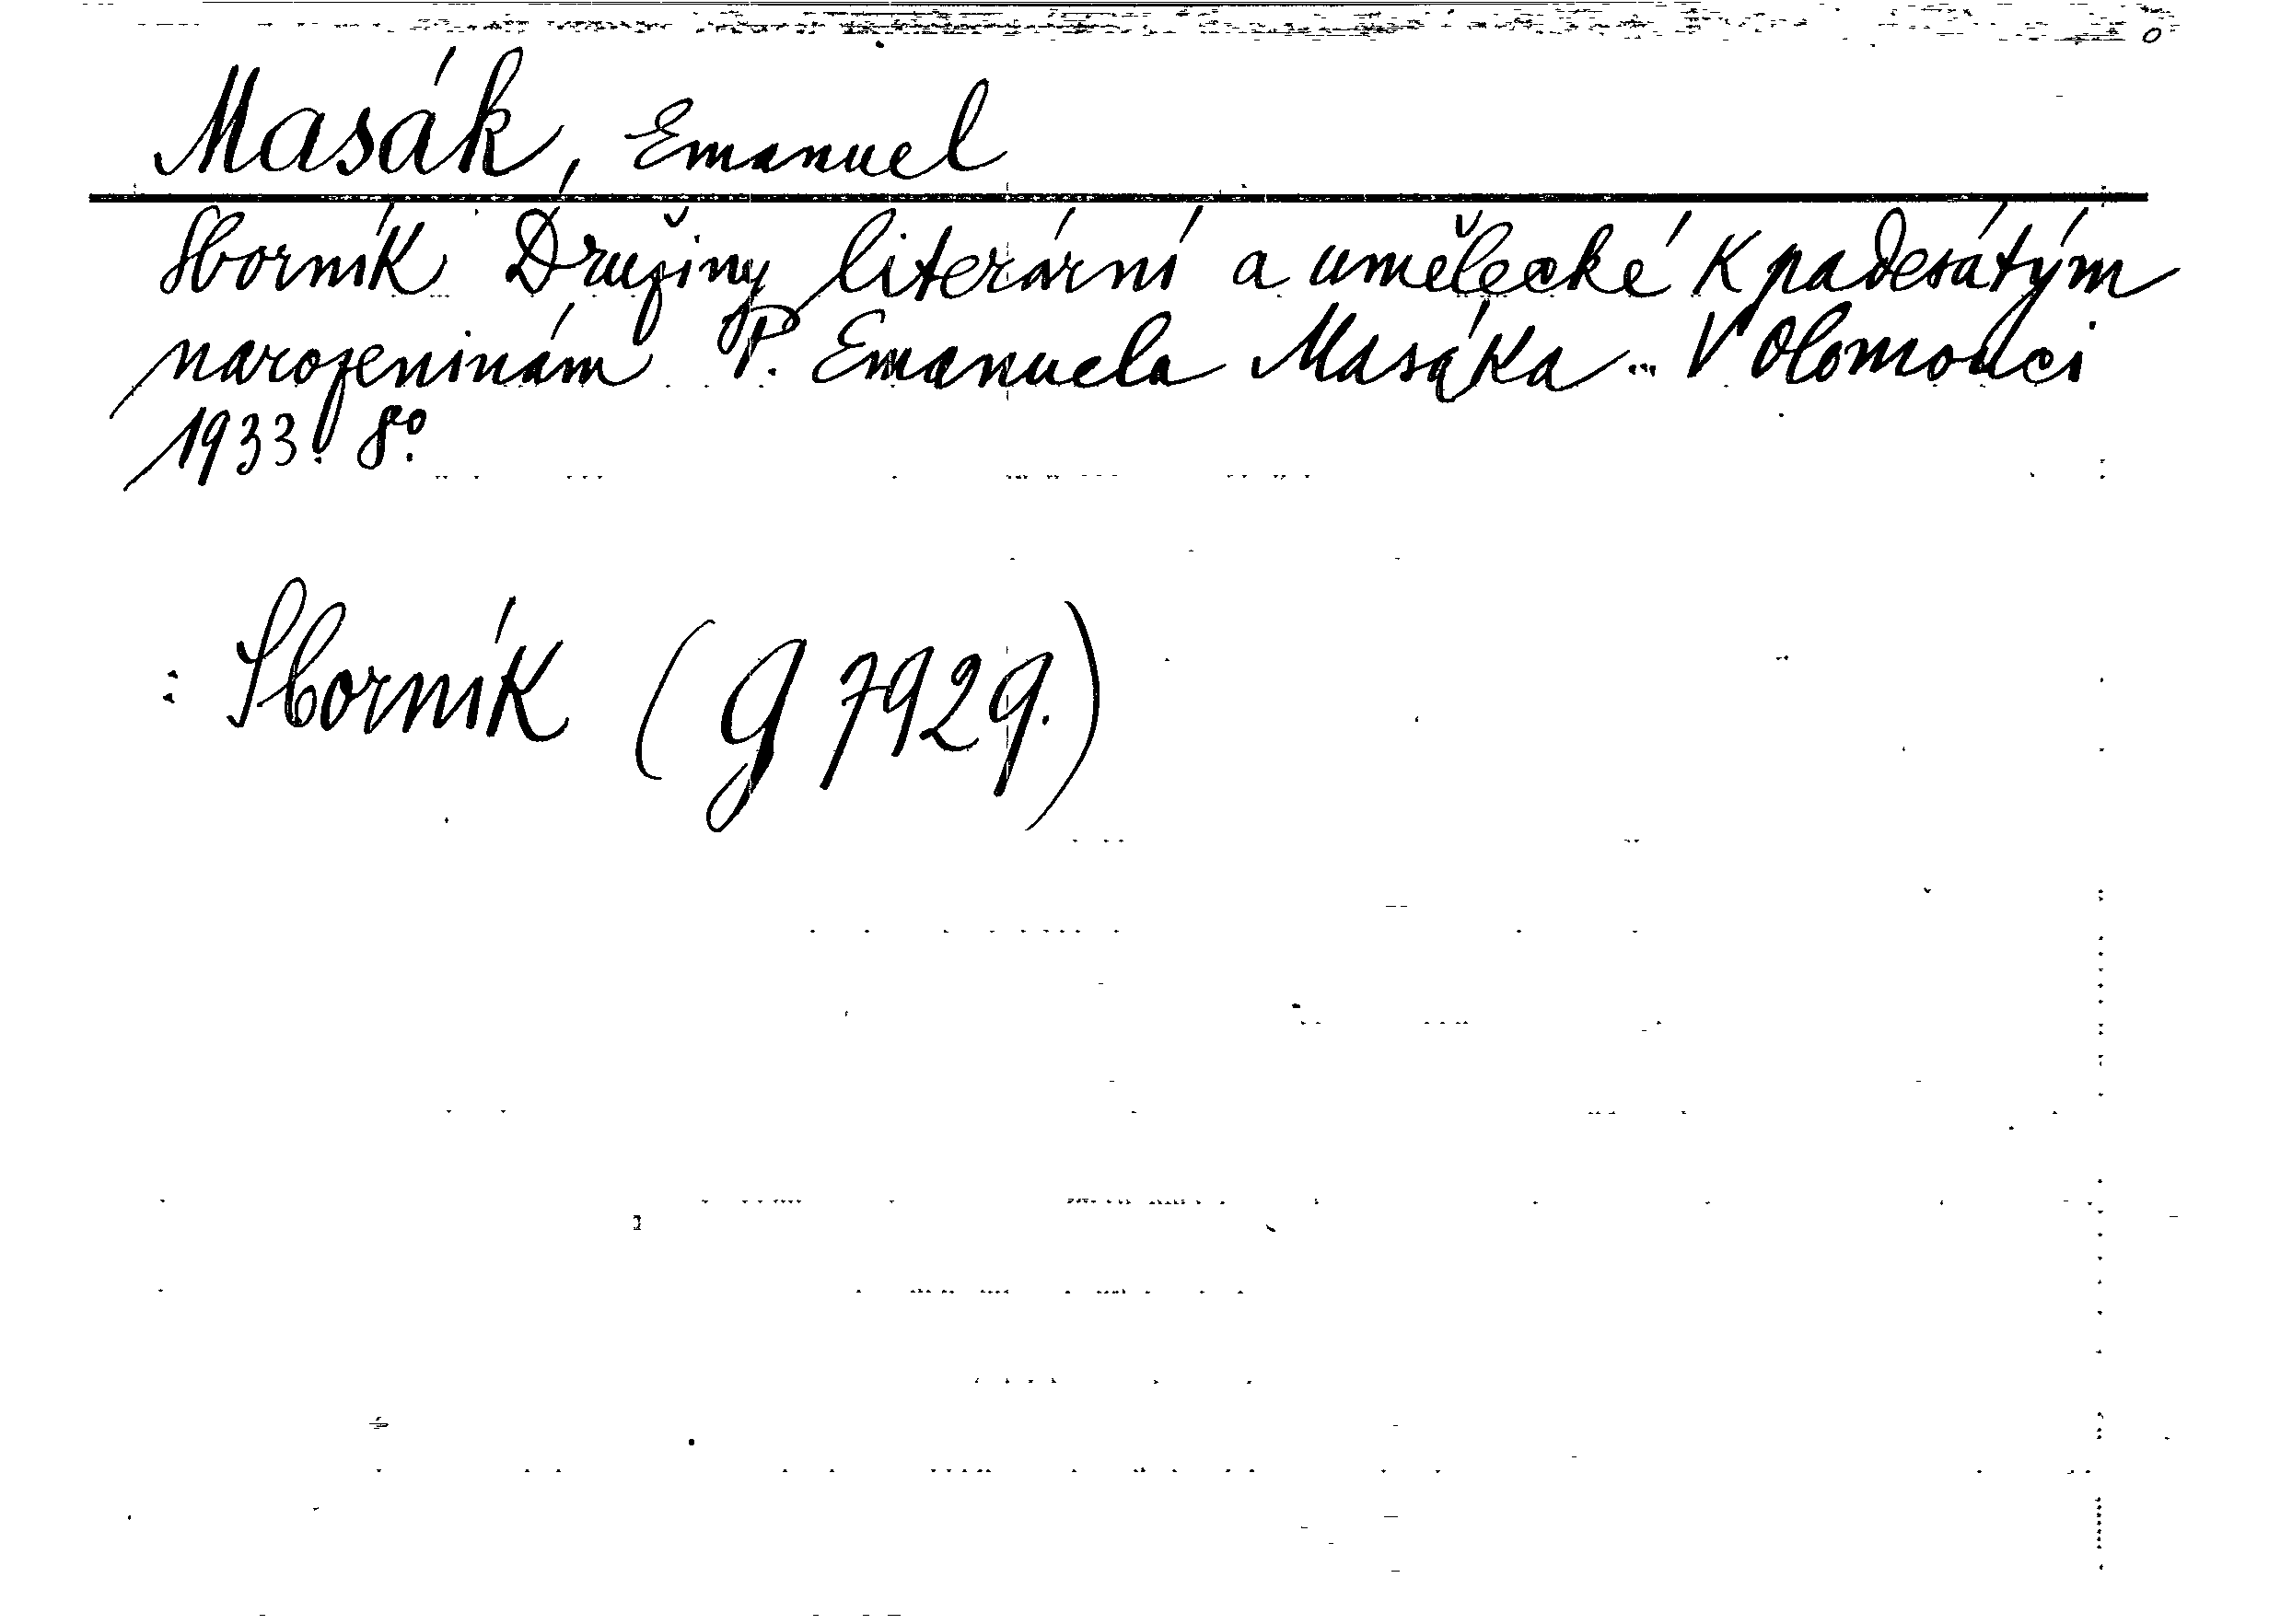 Masák, Emanuel
Sborník Družiny literární a umělecké k padesátým
narozeninám P. Emanuela Masáka... V Olomouci
1933. 8°.
: Sborník (G 7929.)